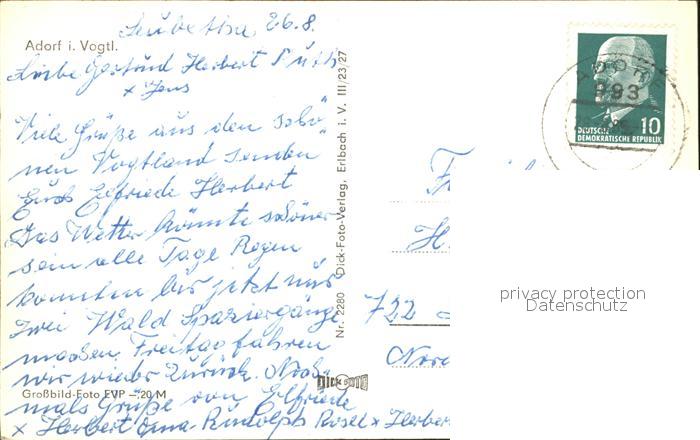 Leubetha 26.8.
Adorf i. Vogtl.
Liebe Gertrud Herbert Ruth
x Jens
Viele Grüße aus den schö
nen Vogtland senden
Euch Elfriede Herbert
Das Wetter könnte schöner
sein alle Tage Regen
konnten bis jetzt nur
zwei Wald Spaziergänge
machen. Freitag fahren
wir wieder zurück. Noch
Großbild-Foto EVP –,20 M
mals Grüße von Elfriede
x Herbert Erna Rudolph x Herber
Nr. 2280 Dick-Foto-Verlag, Erlbach i. V. III/23/27
DICK FOTO
ADORF
993
10
DEUTSCHE
DEMOKRATISCHE REPUBLIK
F
H
722
Nord
privacy protection
Datenschutz